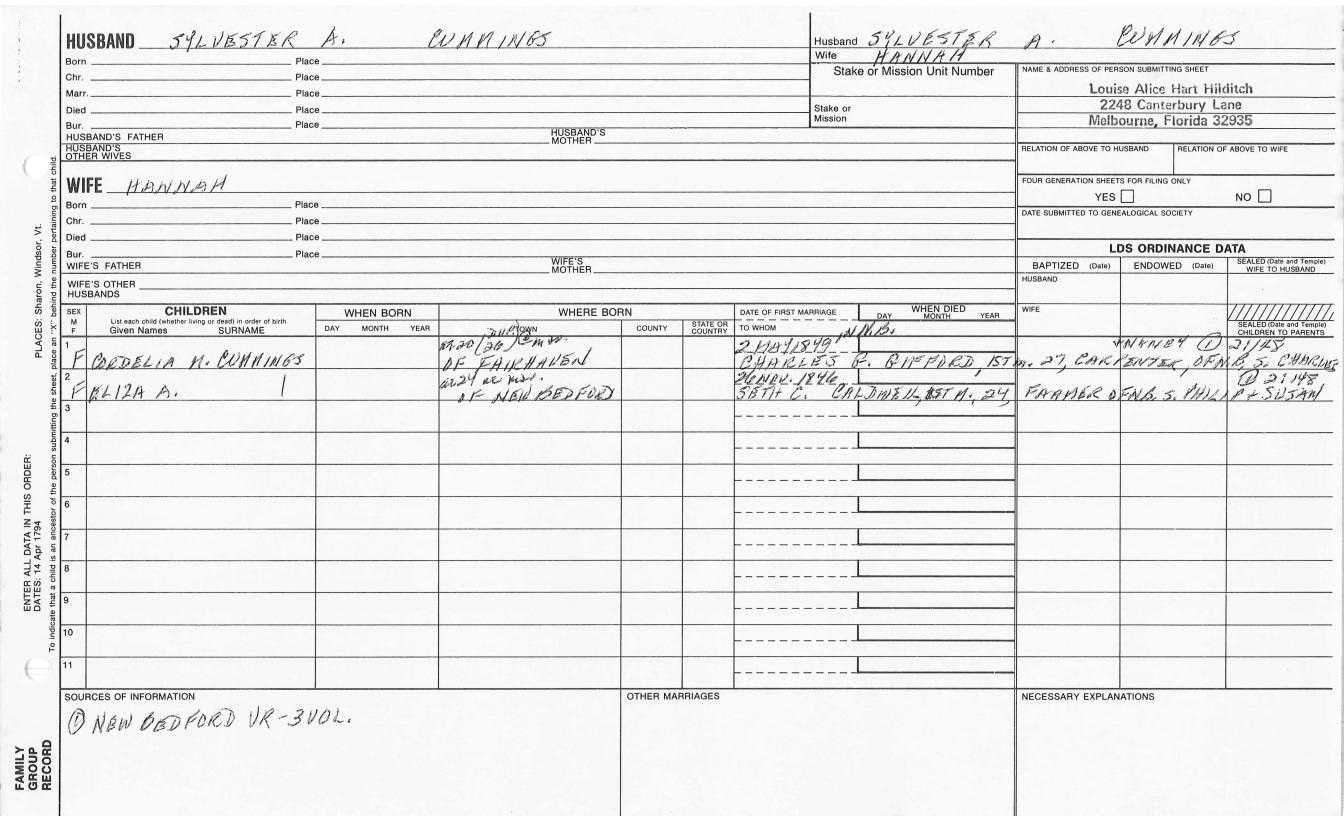 HUSBAND SYLVESTER A. CUMMINGS
Born Place
Chr. Place
Marr. Place
Died Place
Bur. Place
HUSBAND'S FATHER HUSBAND'S MOTHER
HUSBAND'S OTHER WIVES
Husband SYLVESTER A. CUMMINGS
Wife HANNAH
Stake or Mission Unit Number
Stake or
Mission
NAME & ADDRESS OF PERSON SUBMITTING SHEET
Louise Alice Hart Hilditch
2248 Canterbury Lane
Melbourne, Florida 32935
RELATION OF ABOVE TO HUSBAND RELATION OF ABOVE TO WIFE
FOUR GENERATION SHEETS FOR FILING ONLY
YES NO
DATE SUBMITTED TO GENEALOGICAL SOCIETY
WIFE HANNAH
Born Place
Chr. Place
Died Place
Bur. Place
WIFE'S FATHER WIFE'S MOTHER
WIFE'S OTHER
HUSBANDS
LDS ORDINANCE DATA
BAPTIZED (Date) ENDOWED (Date) SEALED (Date and Temple) WIFE TO HUSBAND
HUSBAND
WIFE
SEALED (Date and Temple)
CHILDREN TO PARENTS
SEX M F
CHILDREN
List each child (whether living or dead) in order of birth
Given Names SURNAME
WHEN BORN
DAY MONTH YEAR
WHERE BORN
TOWN COUNTY STATE OR COUNTRY
DATE OF FIRST MARRIAGE
TO WHOM
WHEN DIED
DAY MONTH YEAR
1 ae. 20 (26) @ mar. 2 MAY 1849 in N.B. + NANCY ① 2:148
F CORDELIA N. CUMMINGS OF FAIRHAVEN CHARLES G. GIFFORD, 1ST m. 27, CARPENTER, OF N.B. S. CHARLES
2 ae. 24 at mar. 26 NOV. 1846 ① 2:148
F ELIZA A. | OF NEW BEDFORD SETH C. CALDWELL, 1ST M. 24, FARMER OF N.B. S. PHILIP + SUSAN
3
4
5
6
7
8
9
10
11
SOURCES OF INFORMATION
① NEW BEDFORD VR-3VOL.
OTHER MARRIAGES
NECESSARY EXPLANATIONS
PLACES: Sharon, Windsor, Vt.
ENTER ALL DATA IN THIS ORDER:
DATES: 14 Apr 1794
To indicate that a child is an ancestor of the person submitting the sheet, place an "X" behind the number pertaining to that child.
FAMILY
GROUP
RECORD